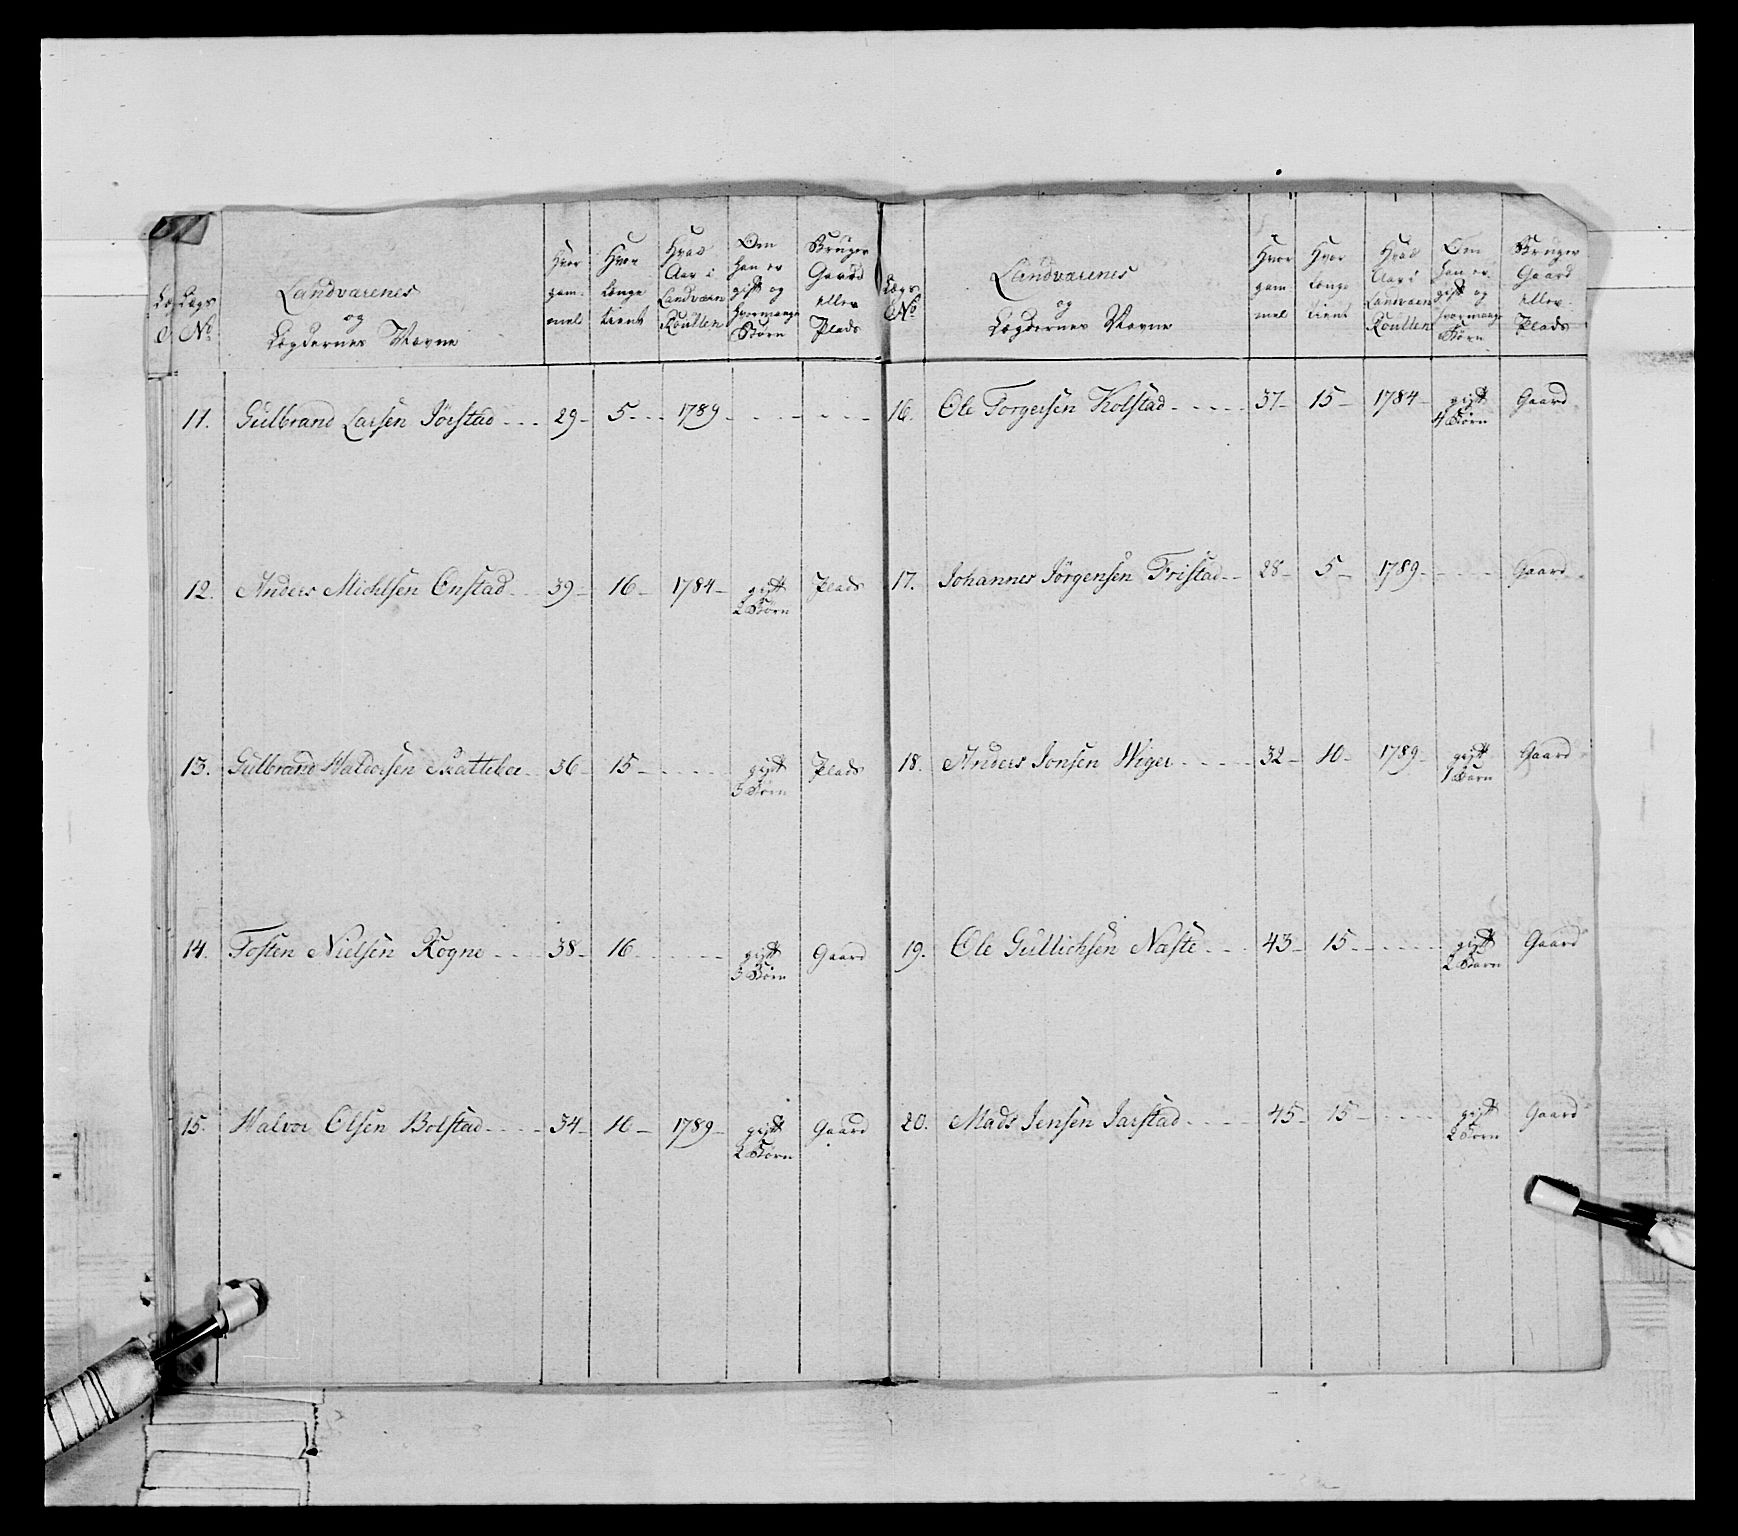 Lægs
No
Landværenes
og
Lægdernes Navne
Hvor
gam-
mel
Hvor
længe
tient
Hvad
Aar i
Landværn
Roullen
Om
han er
gift og
hvormange
Børn
Bruger
Gaard
eller
Plads
11. Gulbrand Larsen Jörstad - - - 29 - 5 - - - 1789 - - - - - - -
12. Anders Michlsen Onstad - - 39 - 16 - 1784 - gift Plads
2 Börn
13. Gulbrand Haldorsen - 36 - 15 - - - - - gift Plads
3 Börn
14. Tosten Nielsen Rogne - - - - 38 - 16 - - - - - gift Gaard
3 Börn
15. Halvor Olsen Bolstad - - - - 34 - 10 - 1789 - gift Gaard
2 Börn
Lægs
No
Landværenes
og
Lægdernes Navne
Hvor
gam
mel
Hvor
længe
tient
Hvad
Aar i
Landværn
Roullen
Om
han er
gift og
hvormange
Børn
Bruger
Gaard
eller
Plads
16. Ole Torgersen Kolstad - - - - - 37 - 15 - 1784 - gift Gaard
4 Börn
17. Johannes Jörgensen Fristad - - 28 - 5 - 1789 - - - - Gaard
18. Anders Jonsen Wiger - - - - - 32 - 10 - 1789 - gift Gaard
1 Barn
19. Ole Gullichsen Næste - - - 43 - 15 - - - - - gift Gaard
2 Barn
20. Mads Jensen Jarstad - - - - 45 - 15 - - - - - gift Gaard
2 Börn